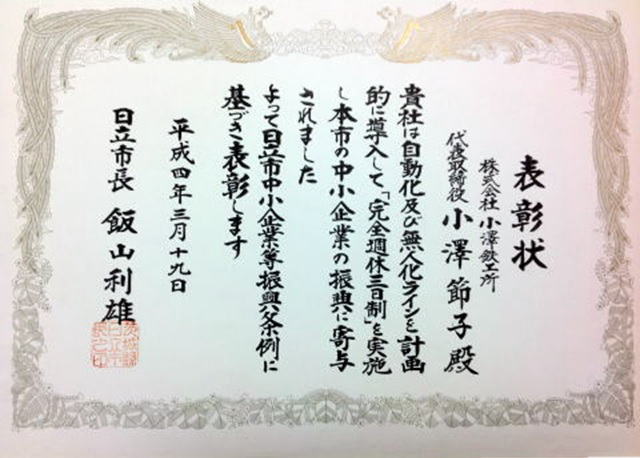 表彰状
株式会社 小澤鉄工所
代表取締役 小澤節子殿
貴社は自動化及び無人化ラインを計画
的に導入して「完全週休三日制」を実施
し本市の中小企業の振興に寄与
されました
よって日立市中小企業等振興条例に
基づき表彰します
平成四年三月十九日
日立市長 飯山利雄